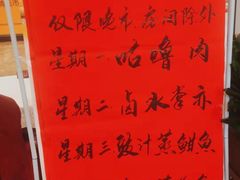 仅限晚市,房间除外
星期一咕噜肉
星期二卤水掌亦
星期三豉汁蒸鲑鱼